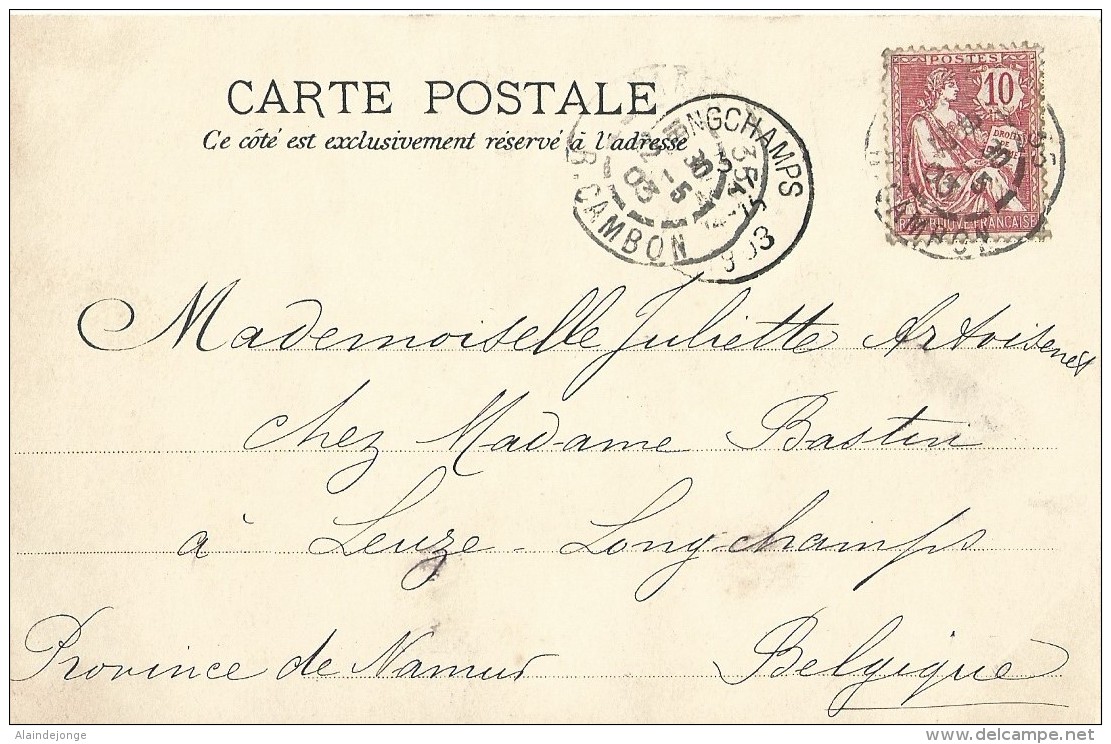 CARTE POSTALE
Ce côté est exclusivement réservé à l'adresse
POSTES
10
RÉPUBLIQUE FRANÇAISE
LONGCHAMPS
1903
35
12 -5
03
CAMBON
Mademoiselle Juliette Artoisenet
chez Madame Bastin
à Leuze - Longchamps
Province de Namur Belgique
Alaindejonge
www.delcampe.net